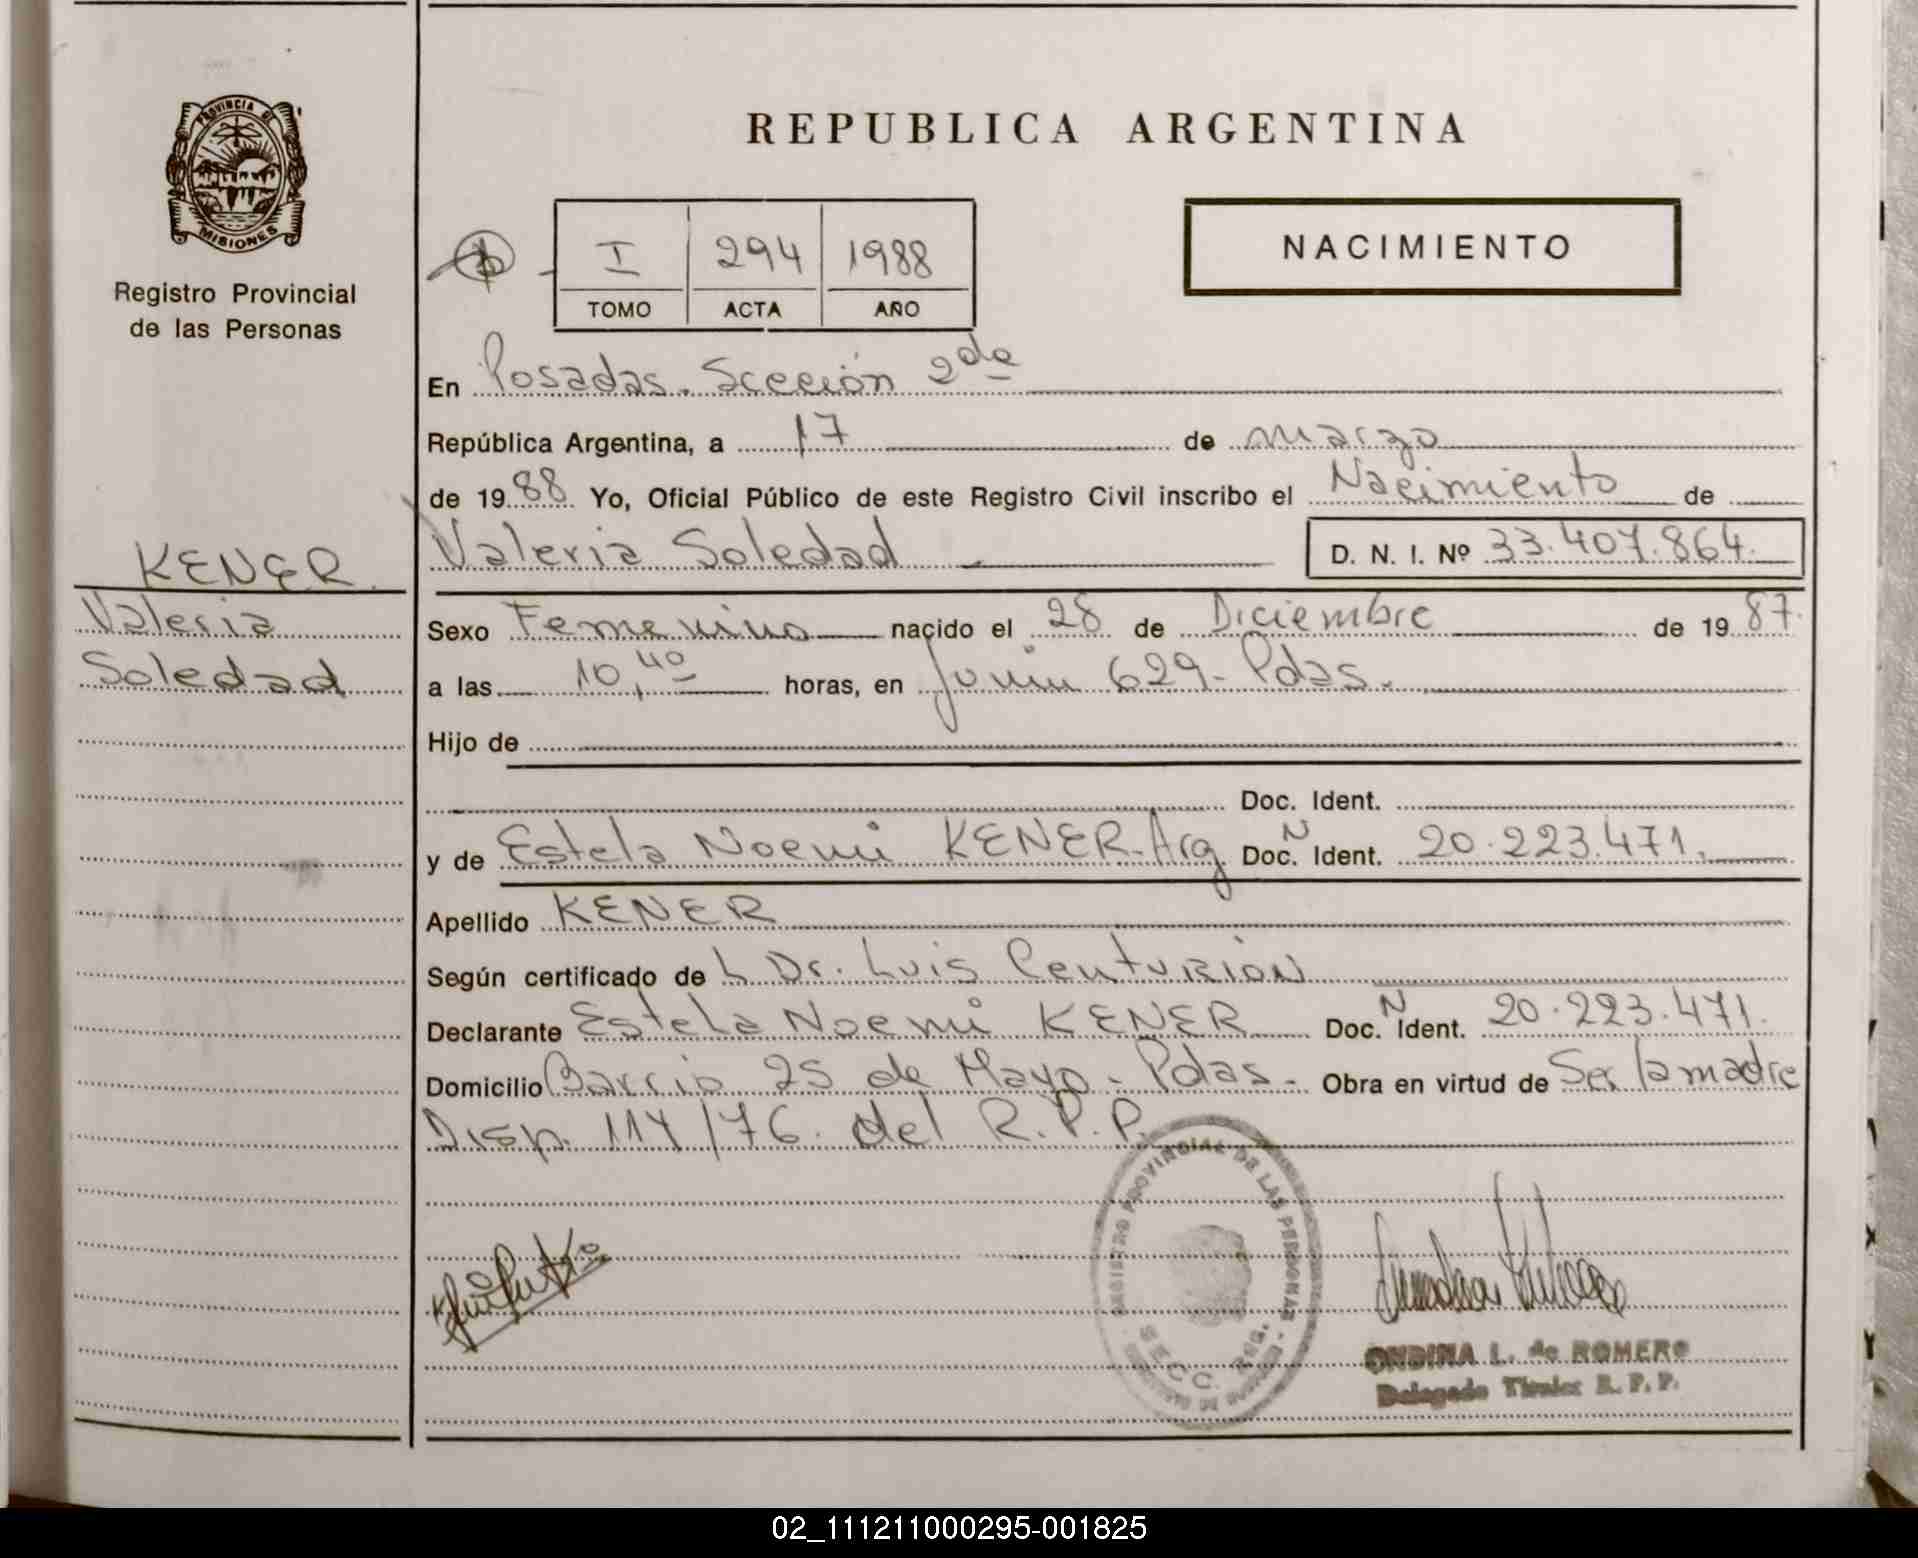 PROVINCIA DE
MISIONES
Registro Provincial
de las Personas
REPUBLICA ARGENTINA
I 294 1988
TOMO ACTA AÑO
NACIMIENTO
En Posadas. Sección 2da
República Argentina, a 17 de marzo
de 1988 Yo, Oficial Público de este Registro Civil inscribo el Nacimiento de
Valeria Soledad D. N. I. Nº 33.407.864.
KENER.
Valeria
Soledad
Sexo Femenino nacido el 28 de Diciembre de 1987.
a las 10,40 horas, en Junin 629- Pdas.
Hijo de
Doc. Ident.
y de Estela Noemi KENER-Arg Doc. N Ident. 20.223.471.
Apellido KENER
Según certificado de L Dr. Luis Centurion
Declarante Estela Noemi KENER Doc. N Ident. 20.223.471.
Domicilio Barrio 25 de Mayo- Pdas- Obra en virtud de Ser la madre
Disp. 114/76. del R.P.P.
REGISTRO PROVINCIAL DE LAS PERSONAS
SECC.
ONDINA L. de ROMERO
Delegado Titular R. P. P.
02_111211000295-001825